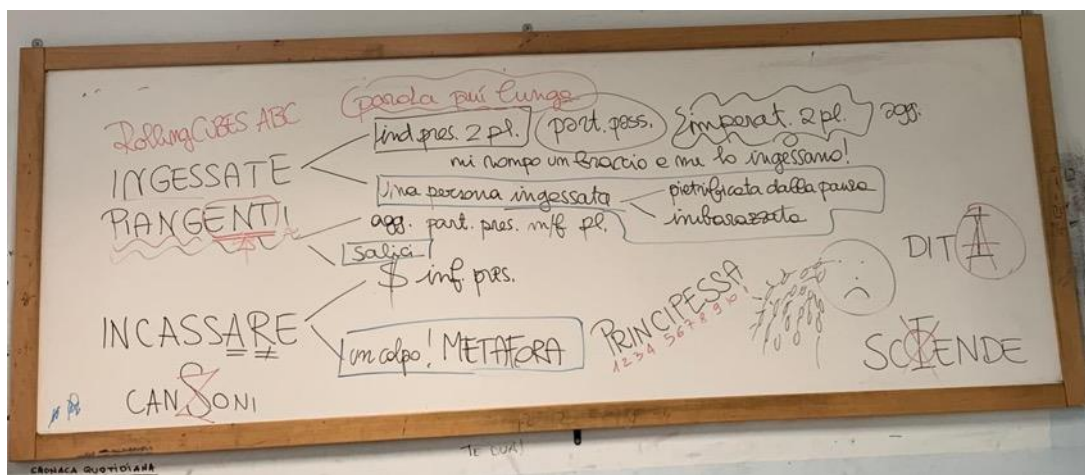 RollingCUBES ABC
parola piuí lunga
INGESSATE
ind. pres. 2 pl.
part. pass.
imperat. 2 pl.
agg.
mi rompo un braccio e me lo ingessano!
una persona ingessata
pietrificata dalla paura
imbarazzata
PIANGENTI
agg. part. pres. m/f pl.
salici
$ inf. pres.
INCASSARE
un colpo! METAFORA
CANSONI
PRINCIPESSA
1 2 3 4 5 6 7 8 9 10!
DITA
SCIENDE
CRONACA QUOTIDIANA